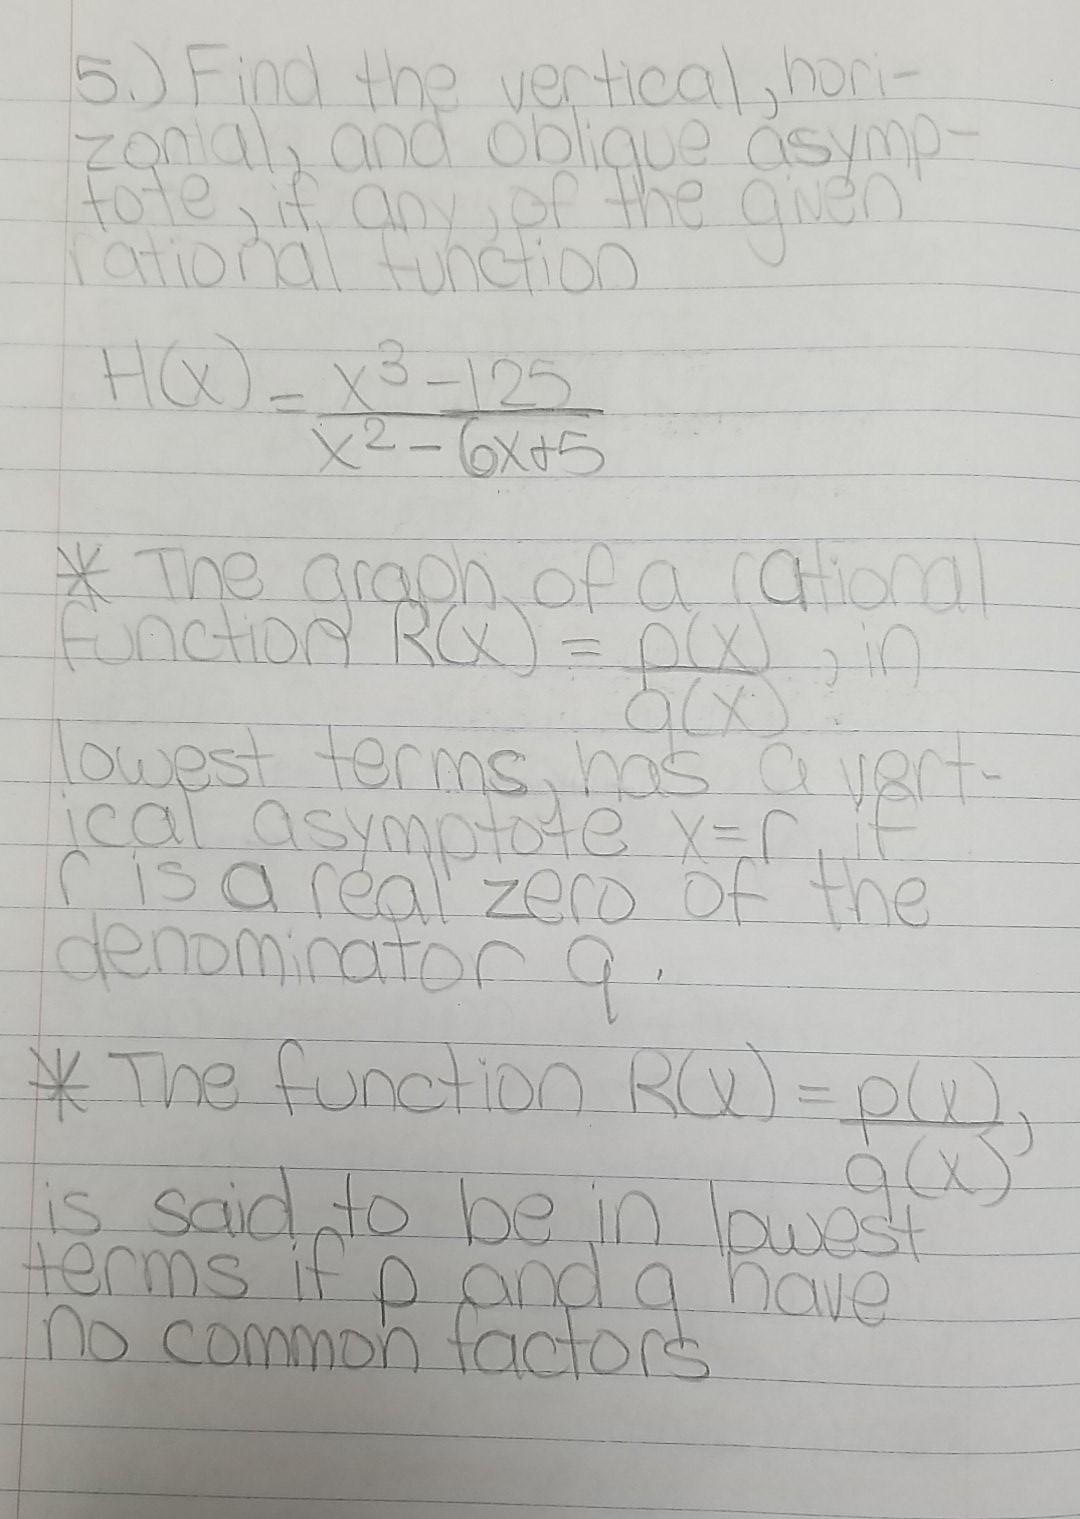 5.) Find the vertical, hori-
zontal, and oblique asymp-
tote, if any, of the given
rational function
H(x) = x³-125
x²-6x+5
* The graph of a rational
function R(x) = p(x), in
q(x)
lowest terms, has a vert-
ical asymptote x=r, if
r is a real zero of the
denominator q.
* The function R(x) = p(x),
q(x)
is said to be in lowest
terms if p and q have
no common factors